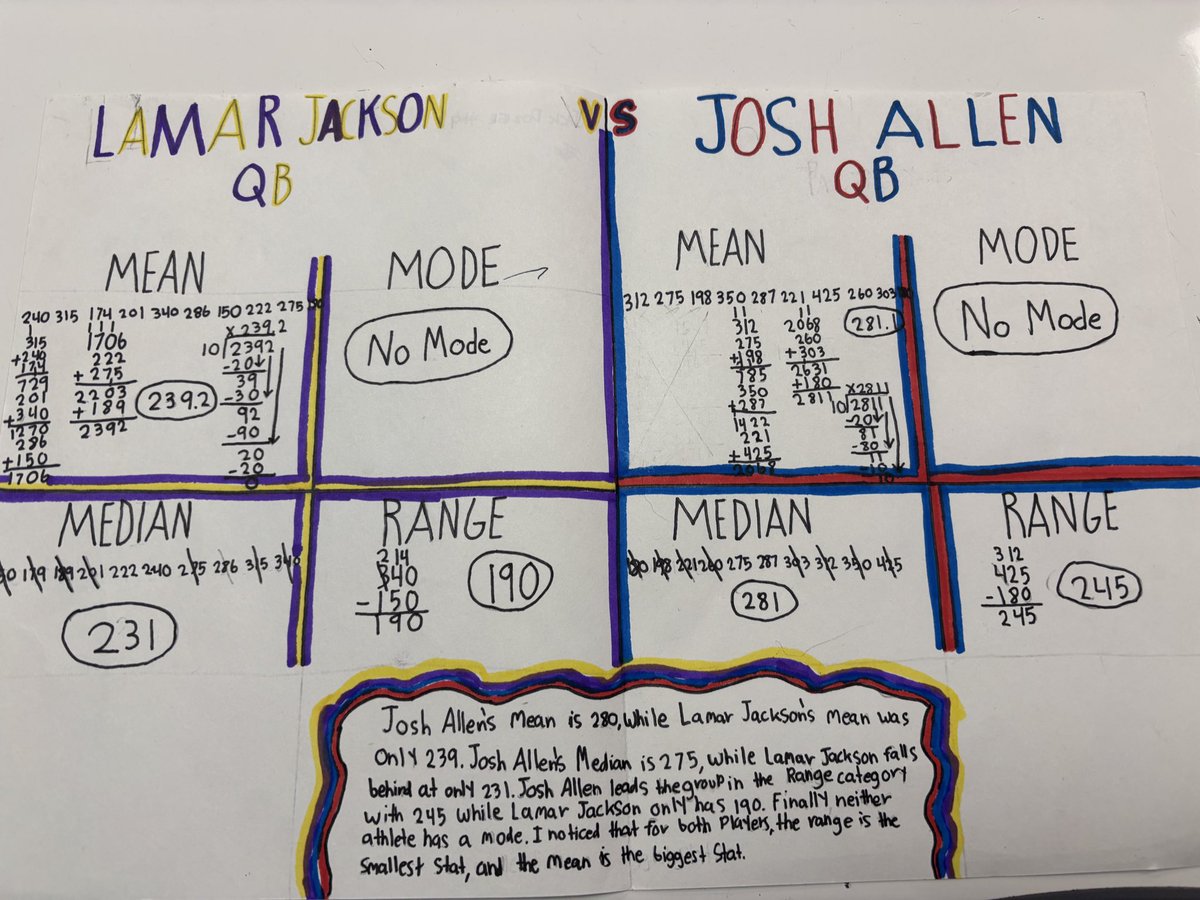 LAMAR JACKSON VS JOSH ALLEN
QB
QB
MEAN
240 315 174 201 340 286 150 222 275
1
315
+240
174
729
201
+340
1270
286
+150
1706
111
1706
222
+275
2203
+189
2392
239.2
x239.2
10 2392
-20
39
-30
92
-90
20
-20
0
MODE
No Mode
MEDIAN
222 240 286
231
RANGE
214
340
-150
190
190
MEAN
312 275 198 350 287 221 425 260 303
11
312
275
+198
785
350
+287
1422
221
+425
2068
11
2068
260
+303
2631
+180
2811
281.
x2811
10 2811
-20
81
-80
11
-10
10
MODE
No Mode
MEDIAN
275 287
281
RANGE
312
425
-180
245
245
Josh Allen's Mean is 280, while Lamar Jackson's mean was
only 239. Josh Allen's Median is 275, while Lamar Jackson falls
behind at only 231. Josh Allen leads the group in the Range category
with 245 while Lamar Jackson only has 190. Finally neither
athlete has a mode. I noticed that for both Players, the range is the
smallest stat, and the mean is the biggest stat.